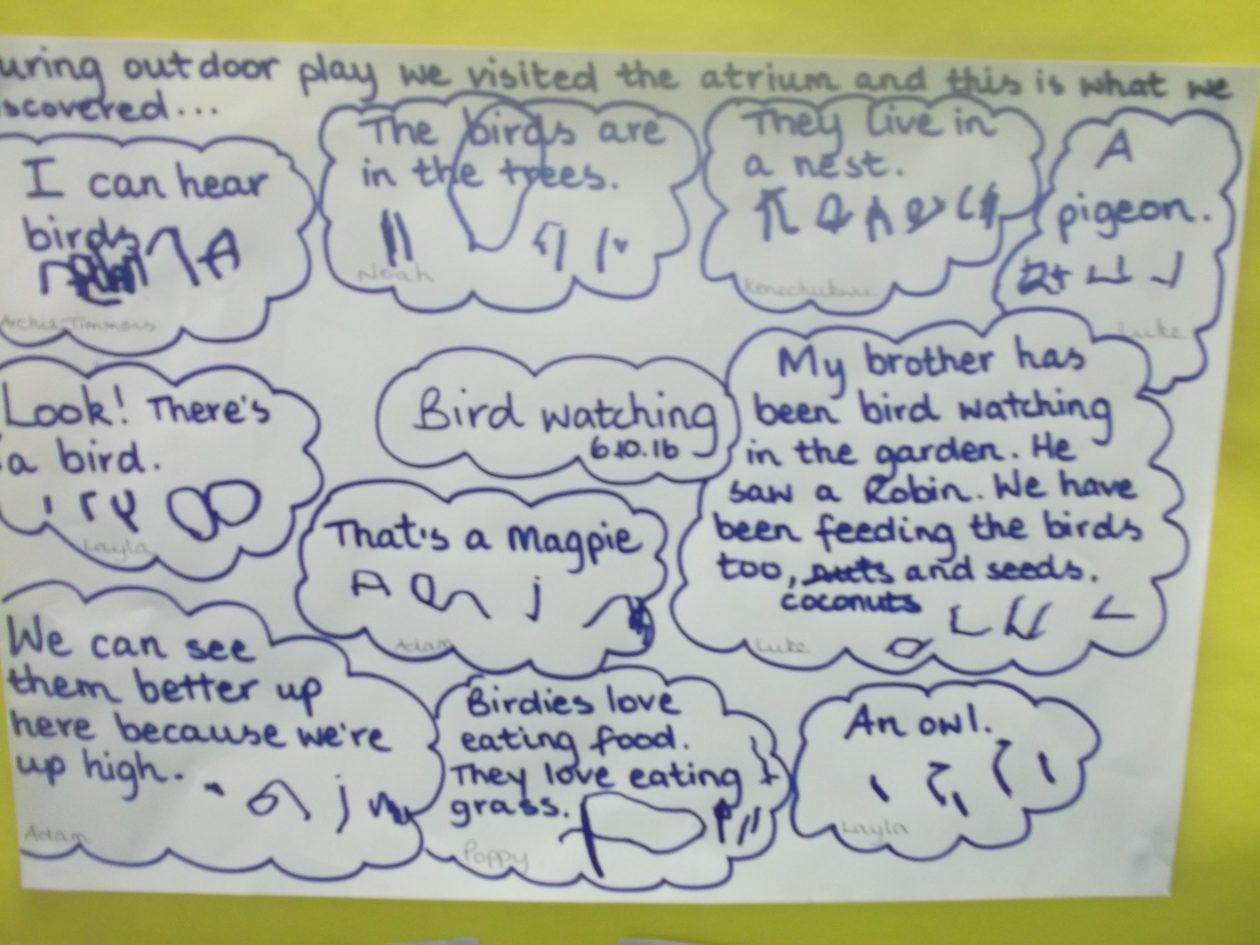 uring outdoor play we visited the atrium and this is what we
scovered...
I can hear
birds
Archie Timmons
The birds are
in the trees.
Noah
They live in
a nest.
A
pigeon.
Luke
Look! There's
a bird.
Layla
Bird watching
6.10.16
My brother has
been bird watching
in the garden. He
saw a Robin. We have
been feeding the birds
too, nuts and seeds.
coconuts
Luke
That's a Magpie
Adam
We can see
them better up
here because we're
up high.
Adam
Birdies love
eating food.
They love eating
grass.
Poppy
An owl.
Layla